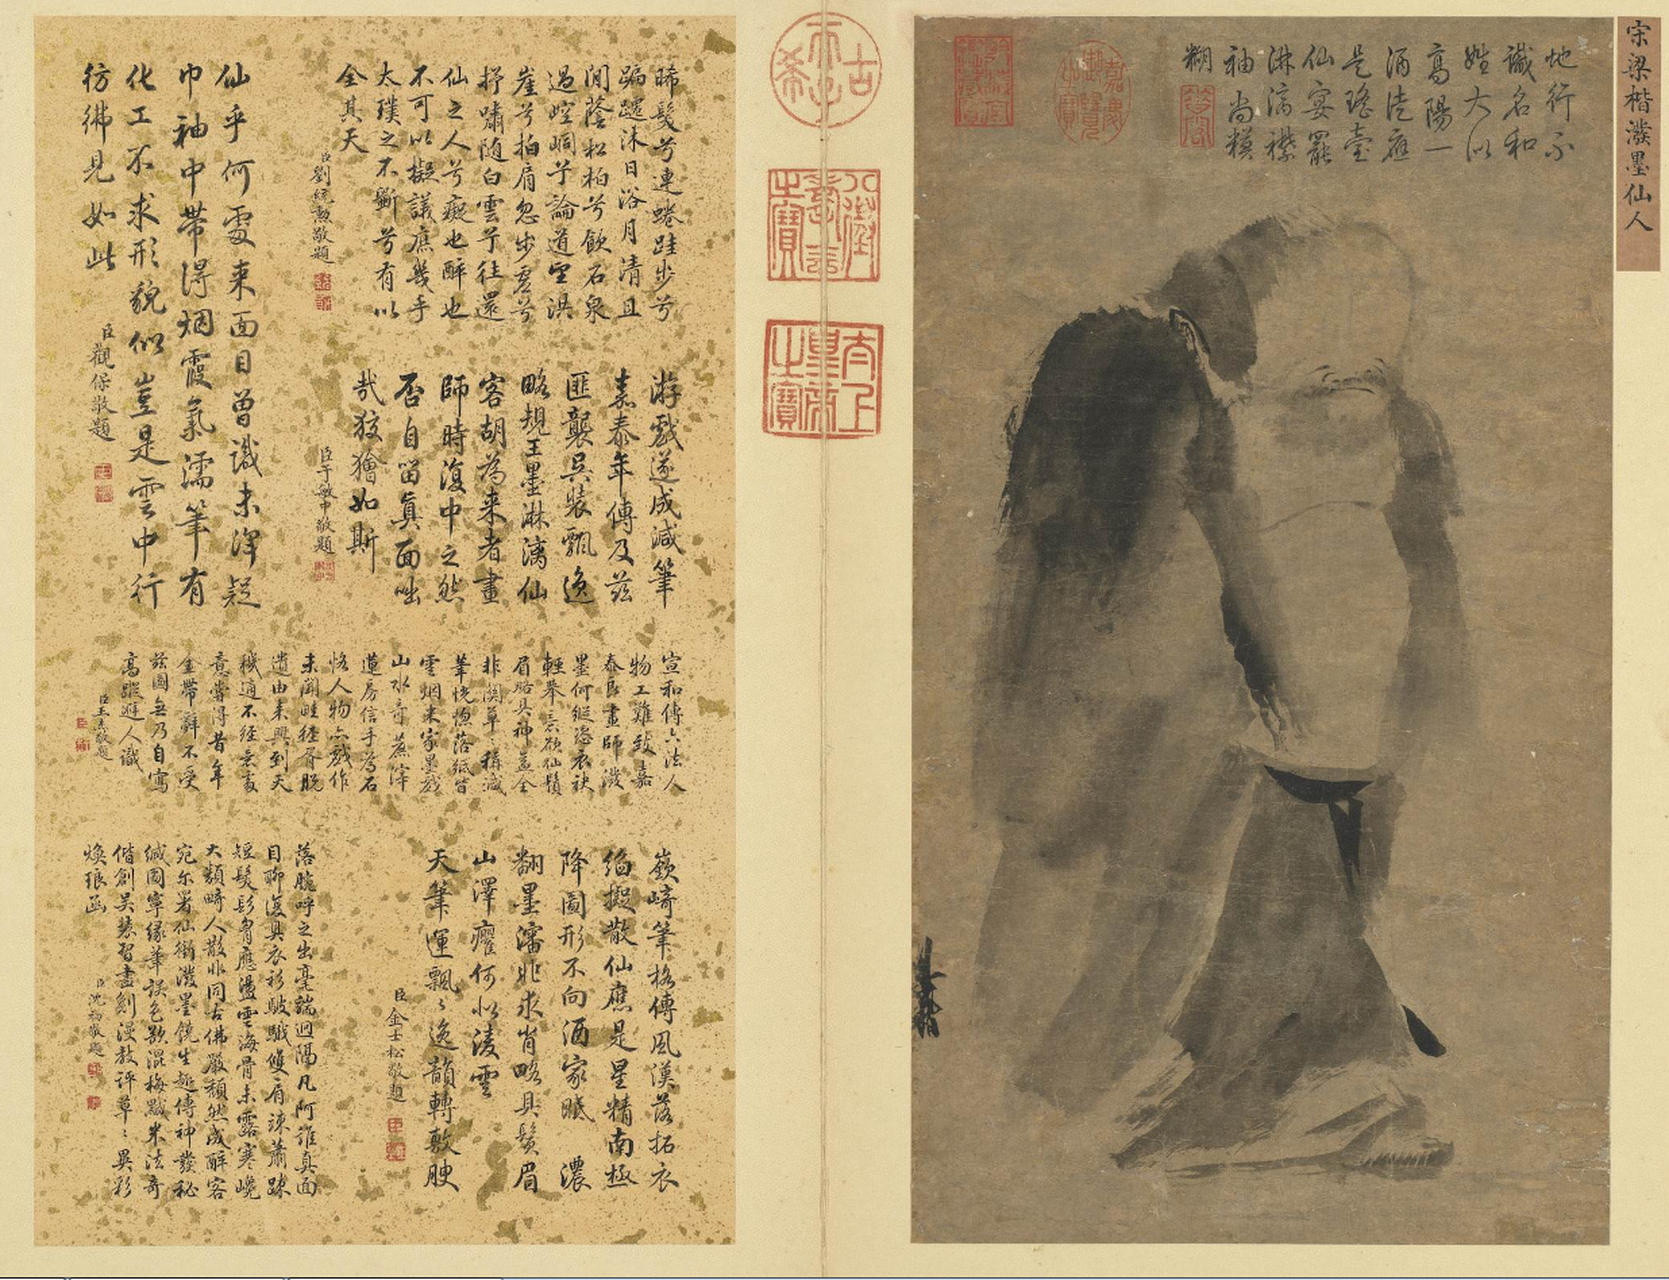 宋梁楷潑墨仙人
地行不
識名和
姓大似
高陽一
酒徒應
是瑤臺
仙宴罷
淋漓襟
袖尚模
糊
嘉慶御覽之寶
梁楷
古希天子
八徵耄念之寶
太上皇帝之寶
晞髮兮連蜷跬步兮
蹁躚沐日浴月清且
閒蔭松柏兮飲石泉
過崆峒兮論道望洪
崖兮拍肩忽步虛兮
抒嘯隨白雲兮往還
仙之人兮癡也醉也
不可以擬議庶幾乎
太璞之不斲兮有以
全其天
臣劉統勳敬題
仙乎何處来面目曾識未渾疑
巾袖中帶得烟霞氣濡筆有
化工不求形貌似豈是雲中行
彷彿見如此
臣觀保敬題
游戲遂成減筆
嘉泰年傳及茲
匪襲吳裝飄逸
略規王墨淋漓仙
客胡為来者畫
師時復中之然
否自留真面咄
哉狡獪如斯
臣于敏中敬題
宣和傳六法人
物工難致嘉
泰良畫師潑
墨何縱恣衣袂
輕舉意欲仙鬚
眉略具神益全
非關草草稱減
筆恍惚落紙皆
雲烟米家墨戲
山水奇蔗滓
蓮房信手為石
恪人物亦戲作
未聞畦徑胥脫
遺由来興到天
機適不經意處
意嘗得昔年
金帶辭不受
茲圖無乃自寫
高蹤避人識
臣王杰敬題
嶔崎筆格傳風漢落拓衣
袍擬散仙應是星精南極
降圖形不向酒家眠 濃
翻墨瀋非求肖略具鬚眉
山澤癯何似淩雲
天筆運飄飄逸韻轉敷腴
臣金士松敬題
落腕呼之出毫端迥隔凡阿誰真面
目聊復具衣衫皴皵雙肩竦蕭疎
短髮髟胷應盪雲海骨未露寒巉
大類畸人散非同古佛嚴頹然成醉客
宛尔署仙銜潑墨饒生趣傳神發秘
緘圖寧緣筆誤色欲混梅黬米法奇
偕創吳裝習盡剷漫教評草草異彩
煥琅函
臣沈初敬題